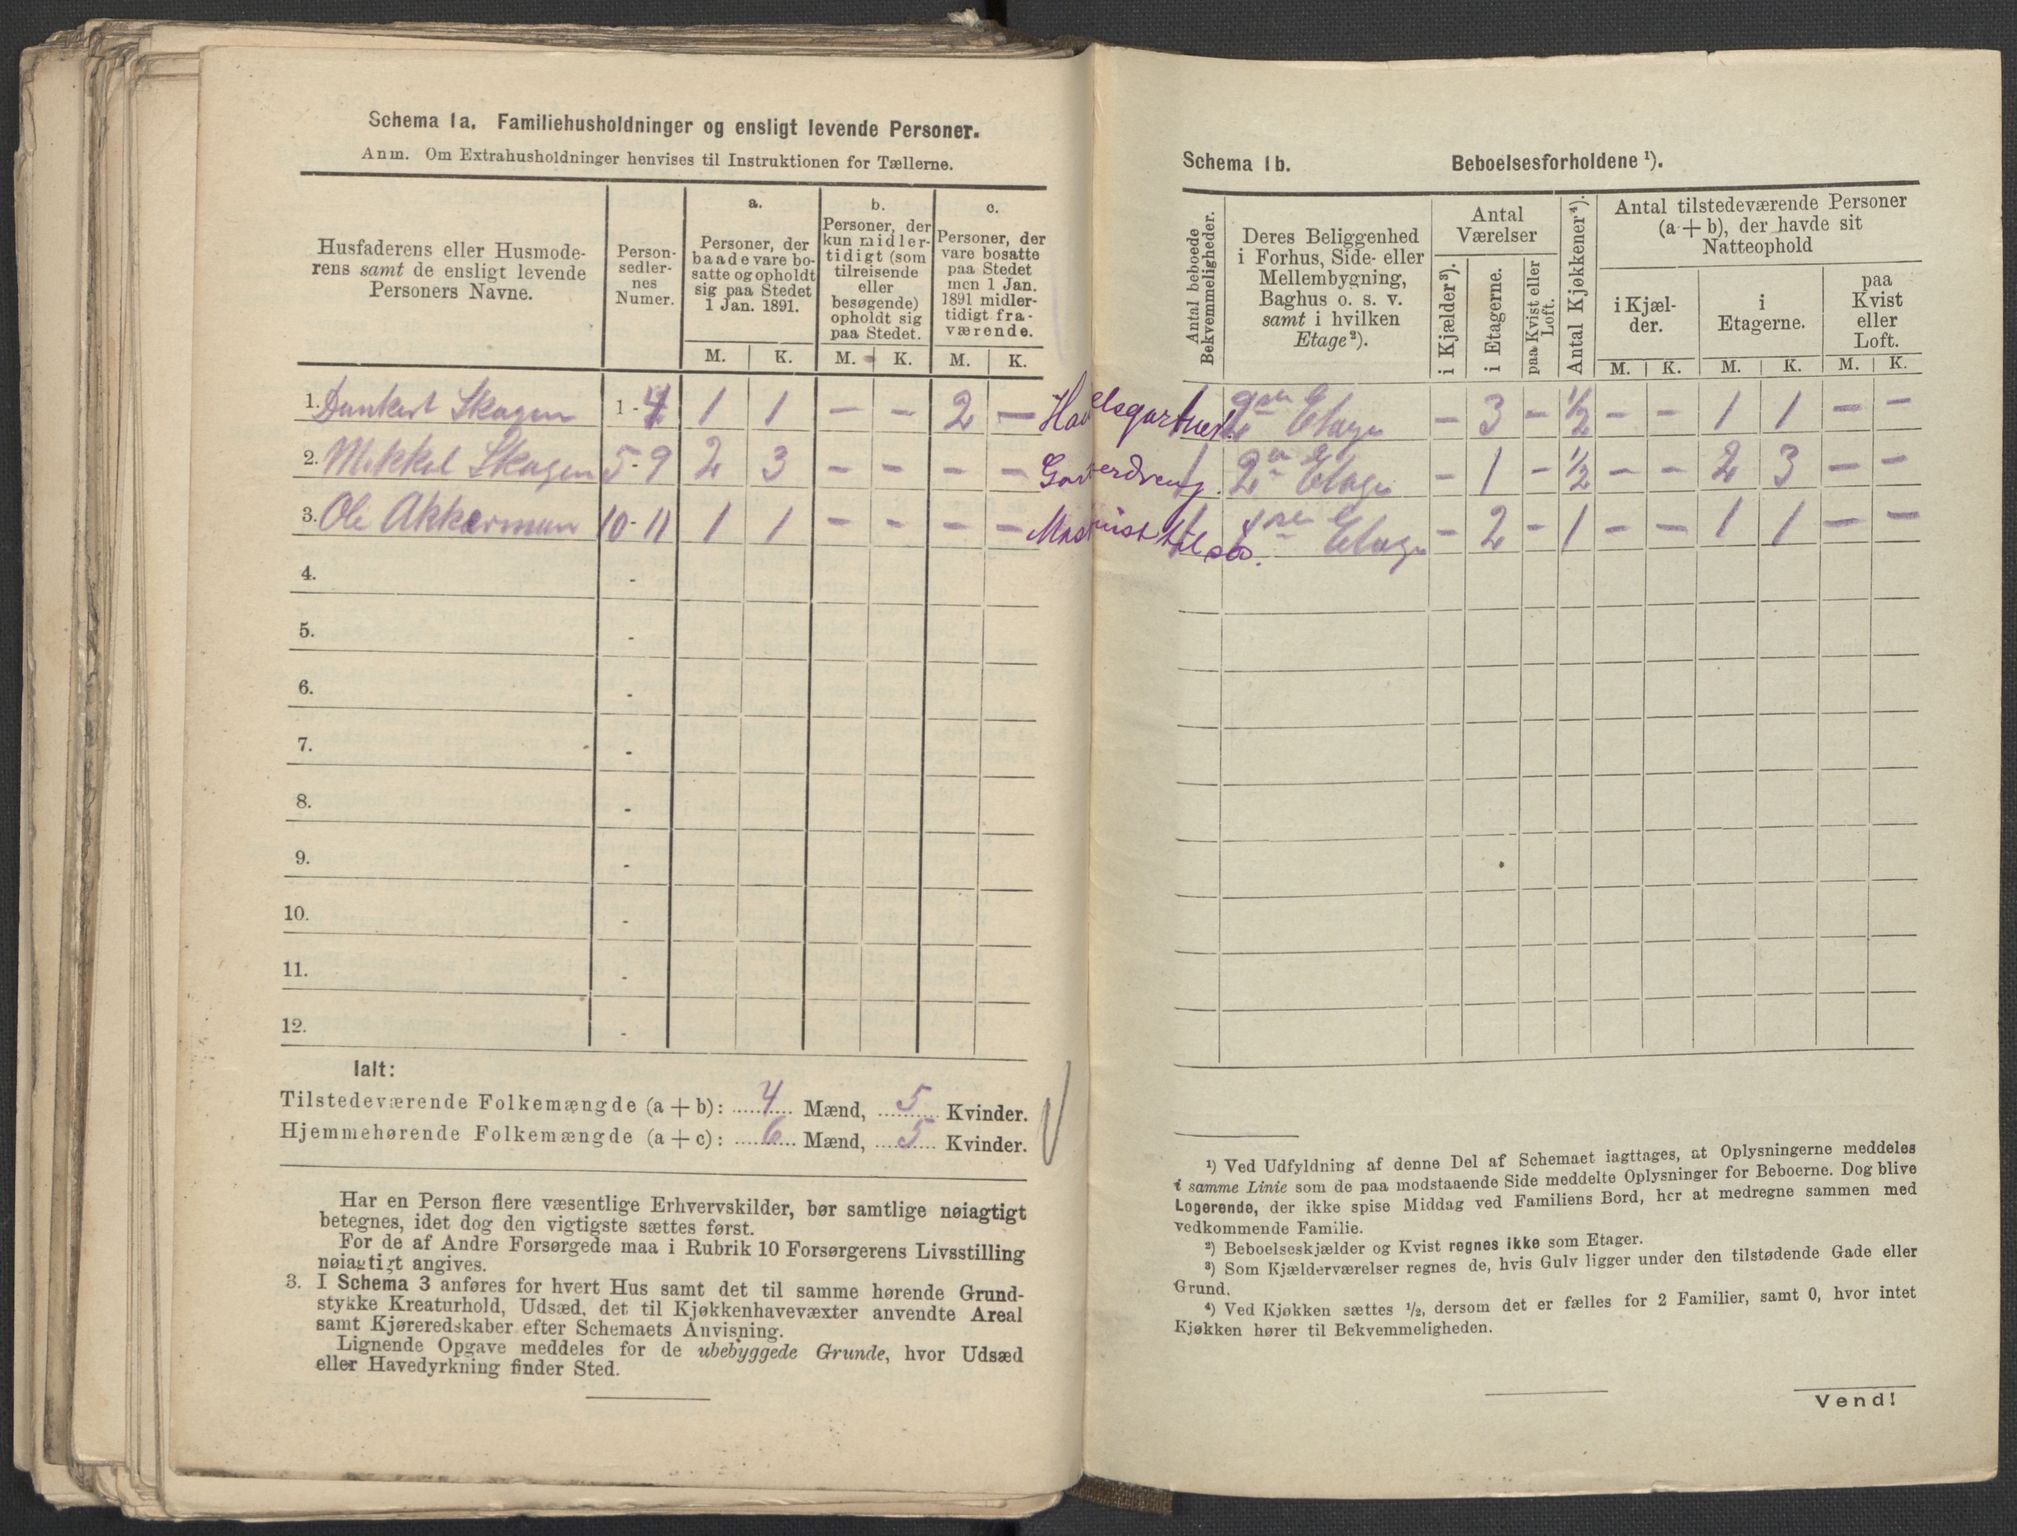 Schema 1a. Familiehusholdninger og ensligt levende Personer.
Anm. Om Extrahusholdninger henvises til Instruktionen for Tællerne.
Husfaderens eller Husmode-
rens samt de ensligt levende
Personers Navne.
Person-
sedler-
nes
Numer.
a.
Personer, der
baade vare bo-
satte og opholdt
sig paa Stedet
1 Jan. 1891.
b.
Personer, der
kun midler-
tidigt (som
tilreisende
eller
besøgende)
opholdt sig
paa Stedet.
c.
Personer, der
vare bosatte
paa Stedet
men 1 Jan.
1891 midler-
tidigt fra-
værende.
M. K. M. K. M. K.
1. Dankert Skagen 1 - 4 1 1 — — 2 —
2. Mikkel Skagen 5 - 9 2 3 — — — —
3. Ole Akkerman 10 - 11 1 1 — — — —
4. -
5. -
6. -
7. -
8. -
9. -
10. -
11. -
12. -
Ialt:
Tilstedeværende Folkemængde (a + b): 4 Mænd, 5 Kvinder.
Hjemmehørende Folkemængde (a + c): 6 Mænd, 5 Kvinder.
Har en Person flere væsentlige Erhvervskilder, bør samtlige nøiagtigt
betegnes, idet dog den vigtigste sættes først.
For de af Andre Forsørgede maa i Rubrik 10 Forsørgerens Livsstilling
nøiagtigt angives.
3. I Schema 3 anføres for hvert Hus samt det til samme hørende Grund-
stykke Kreaturhold, Udsæd, det til Kjøkkenhavevæxter anvendte Areal
samt Kjøreredskaber efter Schemaets Anvisning.
Lignende Opgave meddeles for de ubebyggede Grunde, hvor Udsæd
eller Havedyrkning finder Sted.
Schema 1b. Beboelsesforholdene ¹).
Antal beboede
Bekvemmeligheder.
Deres Beliggenhed
i Forhus, Side- eller
Mellembygning,
Baghus o. s. v.
samt i hvilken
Etage ²).
Antal
Værelser
i Kjælder ³).
i Etagerne.
paa Kvist eller
Loft.
Antal Kjøkkener ⁴).
Antal tilstedeværende Personer
(a + b), der havde sit
Natteophold
i Kjæl-
der.
i
Etagerne.
paa
Kvist
eller
Loft.
M. K. M. K. M. K.
2den Etage — 3 — ½ — — 1 1 — —
1 2n Etage — 1 — ½ — — 2 3 — —
Etage — 2 — 1 — — 1 1 — —
¹) Ved Udfyldning af denne Del af Schemaet iagttages, at Oplysningerne meddeles
i samme Linie som de paa modstaaende Side meddelte Oplysninger for Beboerne. Dog blive
Logerende, der ikke spise Middag ved Familiens Bord, her at medregne sammen med
vedkommende Familie.
²) Beboelseskjælder og Kvist regnes ikke som Etager.
³) Som Kjælderværelser regnes de, hvis Gulv ligger under den tilstødende Gade eller
Grund.
⁴) Ved Kjøkken sættes ½, dersom det er fælles for 2 Familier, samt 0, hvor intet
Kjøkken hører til Bekvemmeligheden.
Vend!